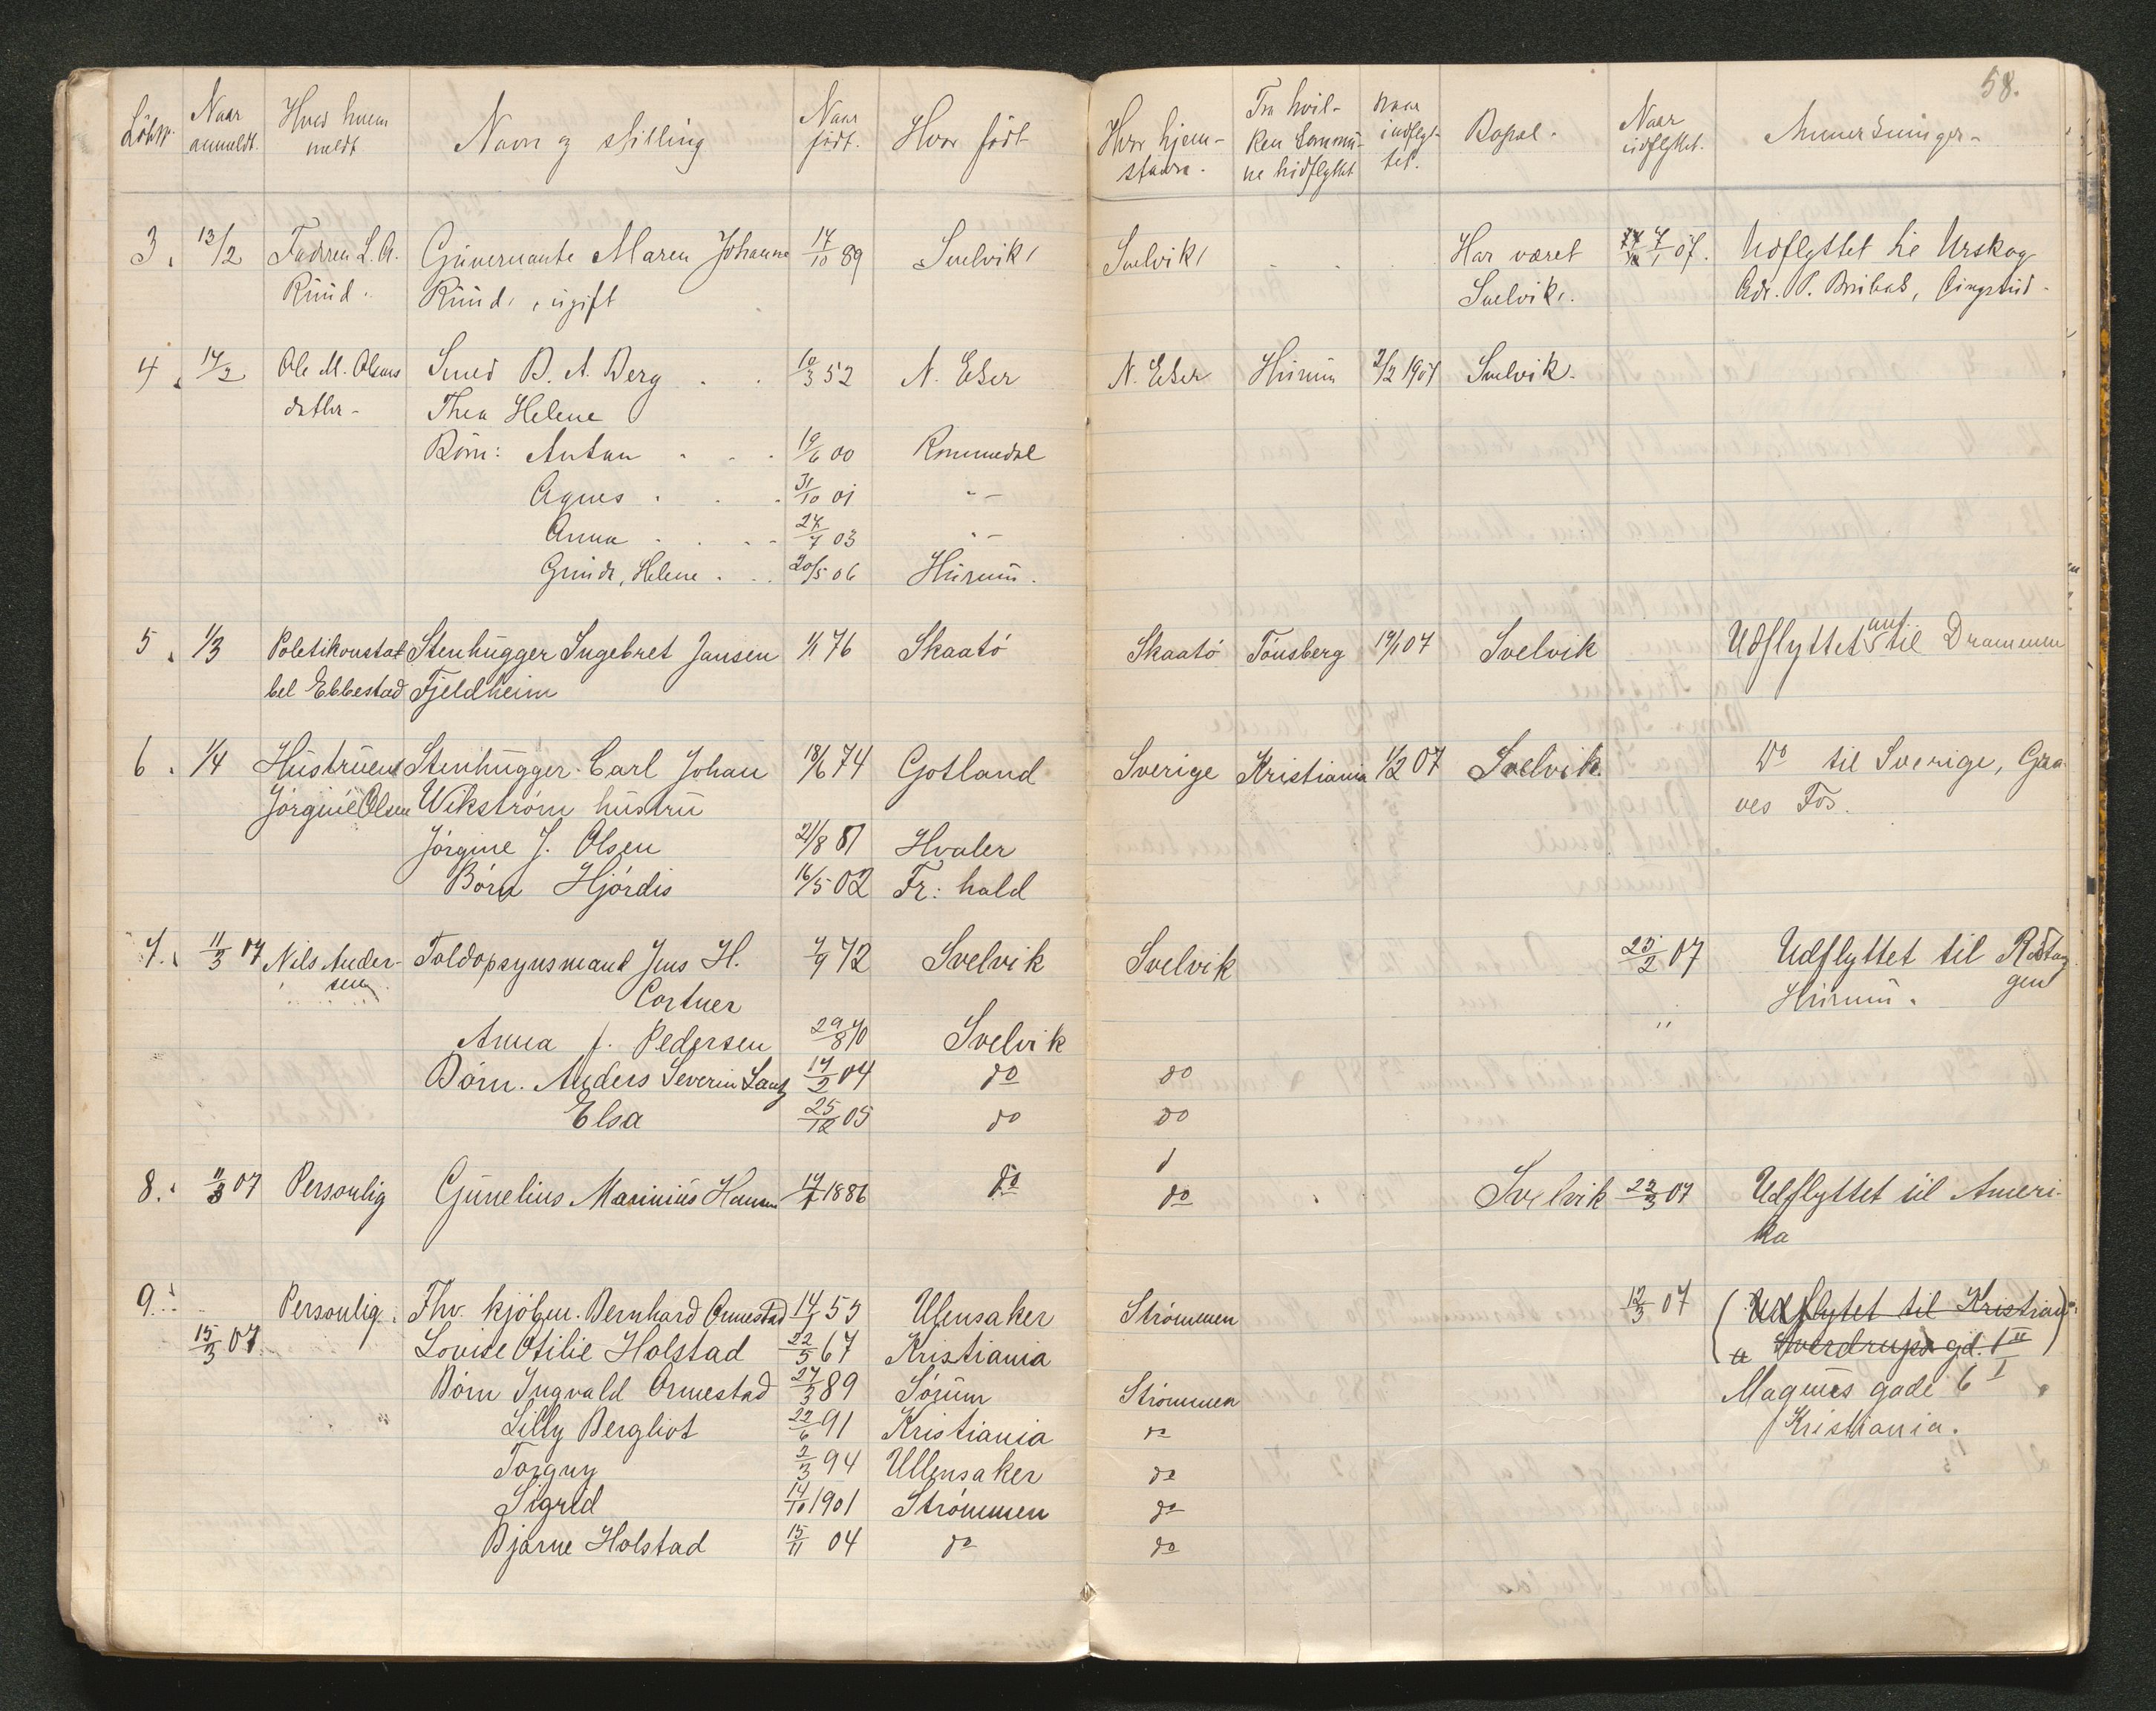 58.
Löbnr. Naar anmeldt. Hvad hvem meldt Navn og stilling Naar födt. Hvor födt Hvor hjem-stavn. Fra hvil-ken kommu-ne hidflyttet Naar indflyt-tet. Bopæl. Naar udflyttet. Anmerkninger.
3. 13/2 Fadren L. A. Guvernante Maren Johanne 14/10 89 Svelvik Svelvik Har været 7/1 07. Udflyttet til Urskog
Ruud. Ruud, ugift Svelvik. Adr. P.
4. 14/2 Ole M. Olsens Smed B. A. Berg 10/3 52 N. Eker N. Eker Hurum 2/2 1907 Svelvik.
datter Thea Helene
Börn: Anton 19/6 00 Rommedal
Agnes 31/10 01 - " -
Anna 27/7 03 - " -
Helene 20/5 06 Hurum.
5. 1/3 Politikonstab Stenhugger Ingebret Jansen 1/1 76 Skaatö Skaatö Tönsberg 19/1 07 Svelvik Udflyttet til Drammen
bel Ebbestad Fjeldheim
6. 1/4 Hustruen Stenhugger Carl Johan 18/6 74 Gotland Sverige Kristiania 1/2 07 Svelvik. Do til Sverige, Gra
Jörgine Olsen Wikström hustru ves Fos.
Jörgine J. Olsen 21/8 81 Hvaler
Börn Hjördis 16/5 02 Fr: hald
7. 11/3 07 Nils Ander- Toldopsynsmand Jens H. 7/9 72 Svelvik Svelvik 25/2 07 Udflyttet til Rödtan
sen Cortner gen
Hurum.
Anna f. Pedersen 29/8 70 Svelvik "
Börn. Anders Severin Lantz 14/2 04 do do
Elsa 25/12 05 do do
8. 11/3 07 Personlig Gunelius Marinius Hansen 14/7 1886 do do Svelvik 22/3 07 Udflyttet til Ameri-
ka
9. Personlig. Fhv. kjöbm. Bernhard Ormestad 14/1 55 Ulensaker Strömmen 12/3 07 (Udflytet til Kristian:
15/3 07 Lovise Otilie Holstad 22/5 67 Kristiania a Sverdrups gd. 1 II)
Börn Ingvald Ormestad 27/3 89 Sörum Strömmen Magnus gade 6 I
Lilly Bergliot 22/6 91 Kristiania do Kristiania.
Torgny 2/3 94 Ullensaker do
Sigrid 14/10 1901 Strömmen do
Bjarne Holstad 15/11 04 do do